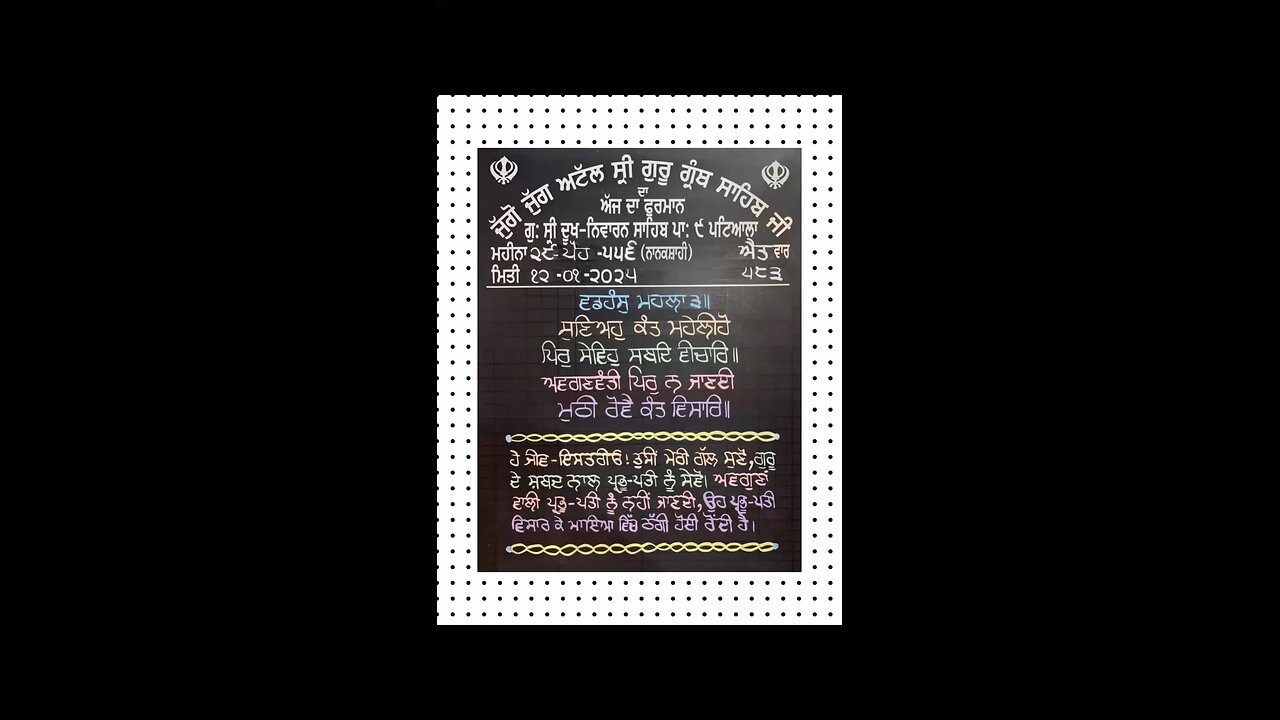 ਜੁੱਗੋ ਜੁੱਗ ਅਟੱਲ ਸ੍ਰੀ ਗੁਰੂ ਗ੍ਰੰਥ ਸਾਹਿਬ ਜੀ
ਦਾ
ਅੱਜ ਦਾ ਫੁਰਮਾਨ
ਗੁ: ਸ੍ਰੀ ਦੂਖ-ਨਿਵਾਰਨ ਸਾਹਿਬ ਪਾ: ੯ ਪਟਿਆਲਾ
ਮਹੀਨਾ ੨੯-ਪੋਹ -੫੫੬ (ਨਾਨਕਸ਼ਾਹੀ) ਐਤ ਵਾਰ
ਮਿਤੀ ੧੨ -੦੧ -੨੦੨੫ ੫੮੩
ਵਡਹੰਸੁ ਮਹਲਾ ੩॥
ਸੁਣਿਅਹੁ ਕੰਤ ਮਹੇਲੀਹੋ
ਪਿਰੁ ਸੇਵਿਹੁ ਸਬਦਿ ਵੀਚਾਰਿ॥
ਅਵਗਣਵੰਤੀ ਪਿਰੁ ਨ ਜਾਣਈ
ਮੁਠੀ ਰੋਵੈ ਕੰਤ ਵਿਸਾਰਿ॥
ਹੇ ਜੀਵ-ਇਸਤਰੀਓ! ਤੁਸੀਂ ਮੇਰੀ ਗੱਲ ਸੁਣੋ, ਗੁਰੂ
ਦੇ ਸ਼ਬਦ ਨਾਲ ਪ੍ਰਭੂ-ਪਤੀ ਨੂੰ ਸੇਵੋ। ਅਵਗੁਣਾਂ
ਵਾਲੀ ਪ੍ਰਭੂ-ਪਤੀ ਨੂੰ ਨਹੀਂ ਜਾਣਦੀ, ਉਹ ਪ੍ਰਭੂ-ਪਤੀ
ਵਿਸਾਰ ਕੇ ਮਾਇਆ ਵਿੱਚ ਠੱਗੀ ਹੋਈ ਰੋਂਦੀ ਹੈ।